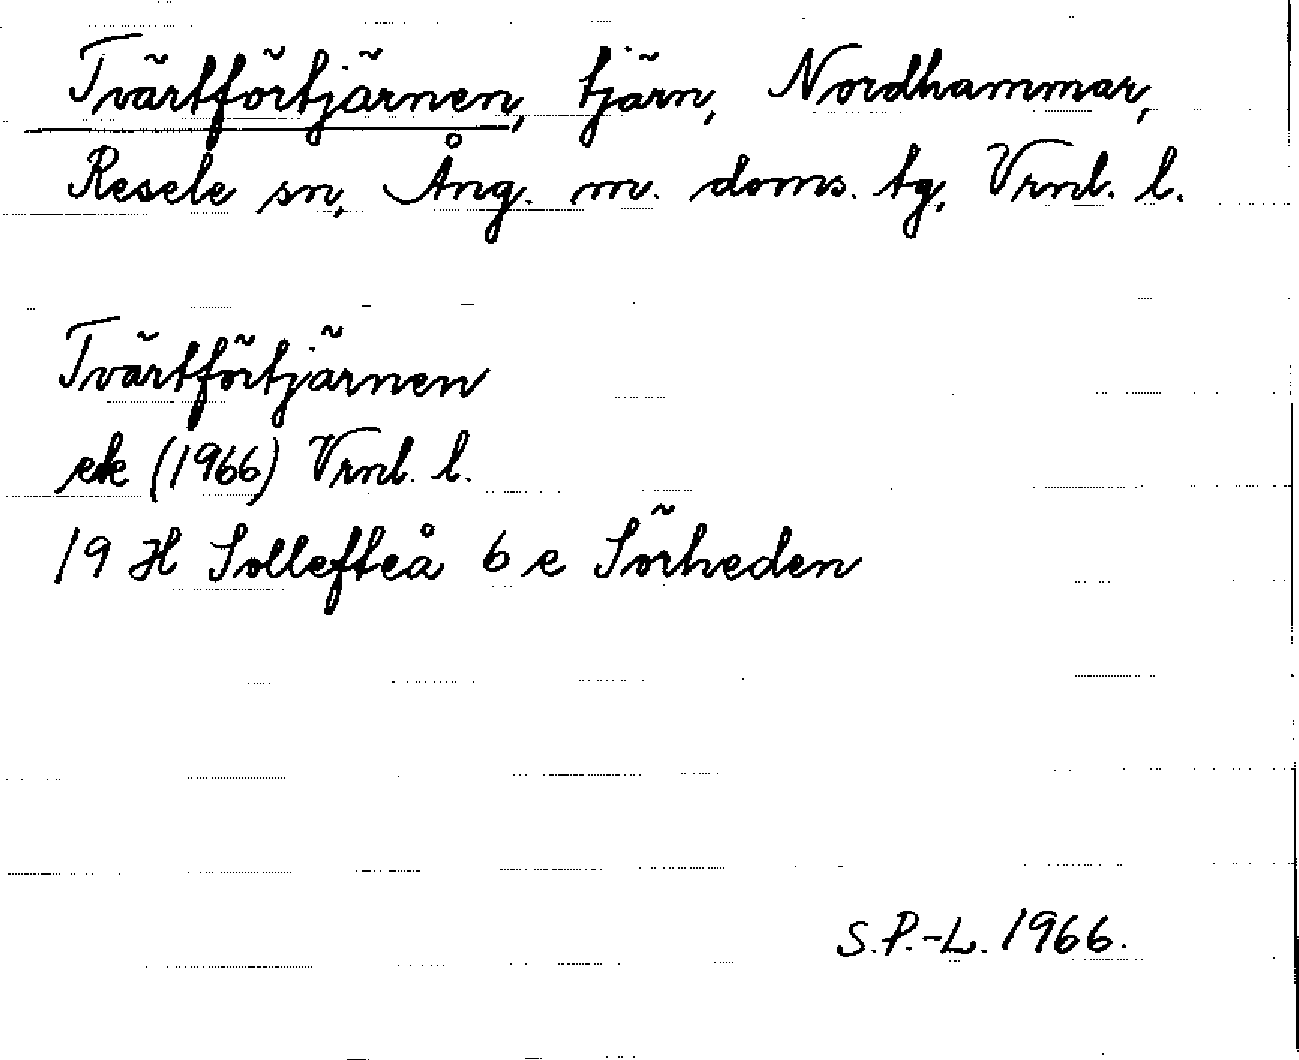 Tvärtförtjärnen, tjärn, Nordhammar,
Resele sn, Ång. m. doms. tg, Vrnl. l.
Tvärtförtjärnen
ek (1966) Vrnl. l.
19 H Sollefteå 6 e Sörheden
S.P.-L. 1966.